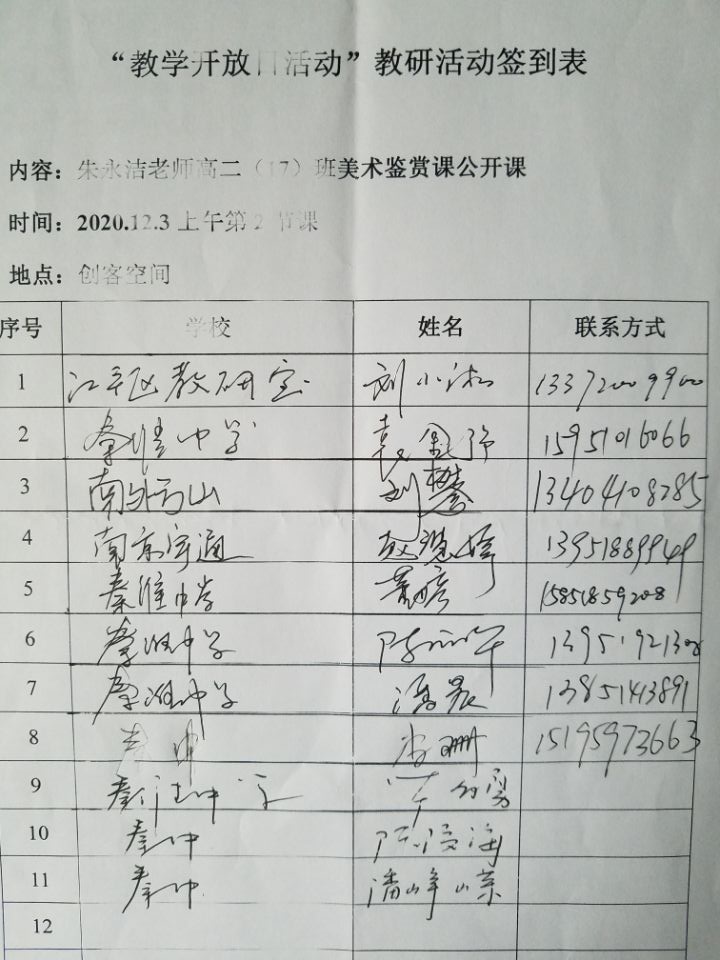 “教学开放日活动”教研活动签到表
内容：朱永洁老师高二（17）班美术鉴赏课公开课
时间：2020.12.3 上午第2节课
地点：创客空间
序号 学校 姓名 联系方式
1 江宁区教研室 刘小 13372009900
2 秦淮中学 袁 15951016066
3 南外方山 刘攀 13404108285
4 南京宇通 赵 13951889949
5 秦淮中学 15851859208
6 秦淮中学 陈
7 秦淮中学 潘晨 13851143891
8 秦中 李珊 15195973663
9 秦淮中学
10 秦中 陈
11 秦中 潘峰
12